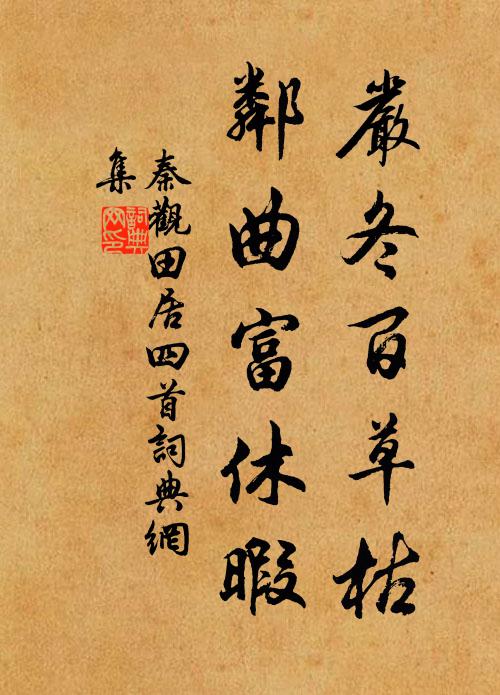 嚴冬百草枯
鄰曲富休暇
秦觀田居四首詞典網
集
詞典網印